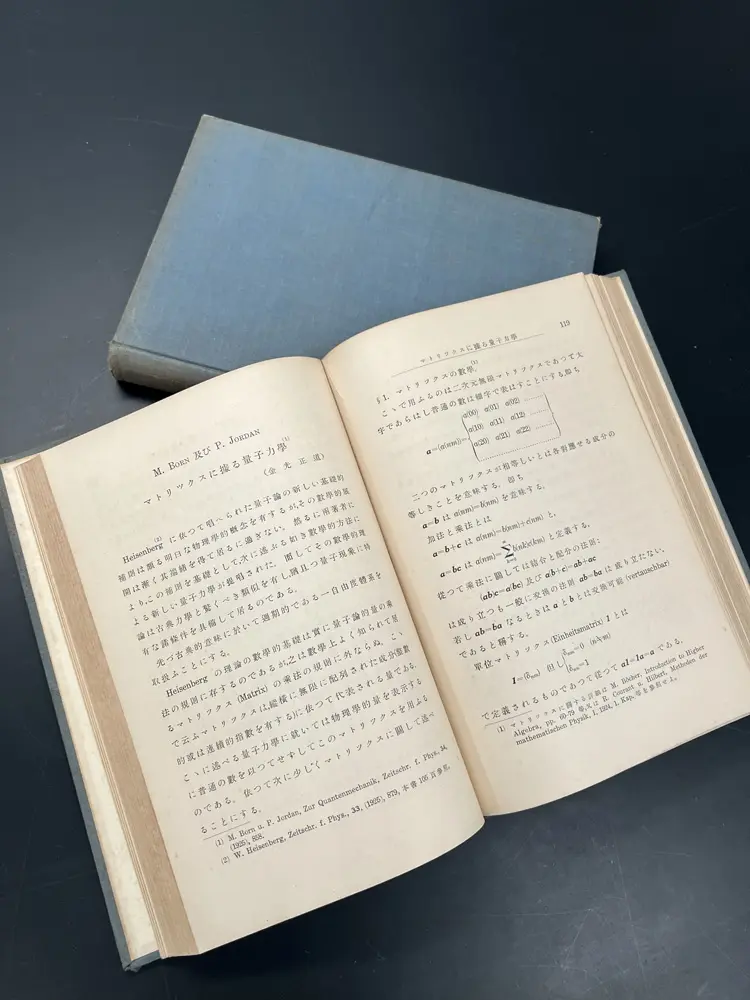 M. BORN 及び P. JORDAN
マトリックスに據る量子力學(1)
(金光正道)
Heisenberg(2) に依つて唱へられた量子論の新しい基礎的
補則は頗る明白な物理學的概念を有するが,その數學的展
開は漸く其造緒を得て居るに過ぎない。然るに兩著者に
より,この補則を基礎として,次に述ぶる如き數學的方法に
よる新しい量子力學が展明された。而してその數學的理
論は古典力學と驚くべき類似を有し,剩且つ量子現象に特
有な諸條件を具備して居るのである。
先づ古典的意味に於いて週期的である一自由度體系を
取扱ふことにする。
Heisenberg の理論の數學的基礎は實に量子論的量の乘
法の規則に存するのであるが,之は數學上よく知られて居
るマトリックス (Matrix) の乘法の規則に外ならぬ。こゝ
で云ふマトリックスは縱橫に無限に配列された成分(整數
的或は連續的指數を有する)に依つて代表される量である.
こゝに述べる量子力學に就いては物理學的量を表示する
に普通の數を以つてせずしてこのマトリックスを用ふる
のである。依つて次に少しくマトリックスに關して述べ
ることにする。
(1) M. Born u. P. Jordan, Zur Quantenmechanik, Zeitschr. f. Phys. 34
(1925), 858.
(2) W. Heisenberg, Zeitschr. f. Phys., 33, (1925), 879, 本書 105 頁參照.
マトリックスに據る量子力學 119
§1. マトリックスの數學.(1)
こゝで用ふるのは二次元無限マトリックスであつて太
字であらはし普通の數は細字で表はすことにする,即ち
a=(a(nm))= a(00) a(01) a(02) ……
a(10) a(11) a(12) ……
a(20) a(21) a(22) ……
二つのマトリックスが相等しいとは各對應せる成分の
等しきことを意味する, 即ち
a=b は a(nm)=b(nm) を意味する.
加法と乘法とは
a=b+c は a(nm)=b(nm)+c(nm) と,
a=bc は a(nm)=∑b(nk)c(km) と定義する,
從つて乘法に關しては結合と配分の法則:
(ab)c=a(bc) 及び a(b+c)=ab+ac
は成り立つも一般に交換の法則 ab=ba は成り立たない,
若し ab=ba なるときは a と b とは交換可能 (vertauschbar)
であると稱する.
單位マトリックス(Einheitsmatrix) 1 とは
1=(δnm) 但し δnm=0 (n≷m)
δnn=1
で定義されるものであつて從つて a1=1a=a である.
(1) マトリックスに關する詳細は M. Bôcher, Introduction to Higher
Algebra, pp. 60-79 等,又は R. Courant u. Hilbert, Methoden der
mathematischen Physik, I, 1924, 1, Kap, 等を參照せよ.